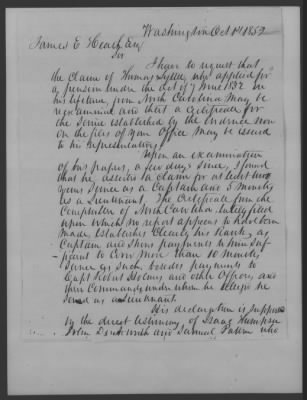 Washington Oct 1st 1852
James E Heath Esq
Sir
I have to request that
the claim of Thomas Lytle, who applied for
a pension under the act of 7 June 1832 in
his lifetime, from North Carolina may be
reexamined and that a Certificate for
the Service established by the evidence now
on the files of your Office may be issued
to his Representatives
Upon an examination
of his papers, a few days since, I found
that he asserted a claim for at least two
years Service as a Captain and 5 months
as a Lieutenant. The Certificate from the
Comptroller of North Carolina lately filed
upon which no report appears to have been
made, establishes clearly his Rank, as
Captain and shows payments to him suf-
-ficient to cover more than 10 months
Service as such, besides payments to
Capt Robert Holmes and other Officers, and
their Commands under whom he alleges he
Served as a Lieutenant.
His declaration is supported
by the direct testimony of Isaac Thompson
John and Samuel who